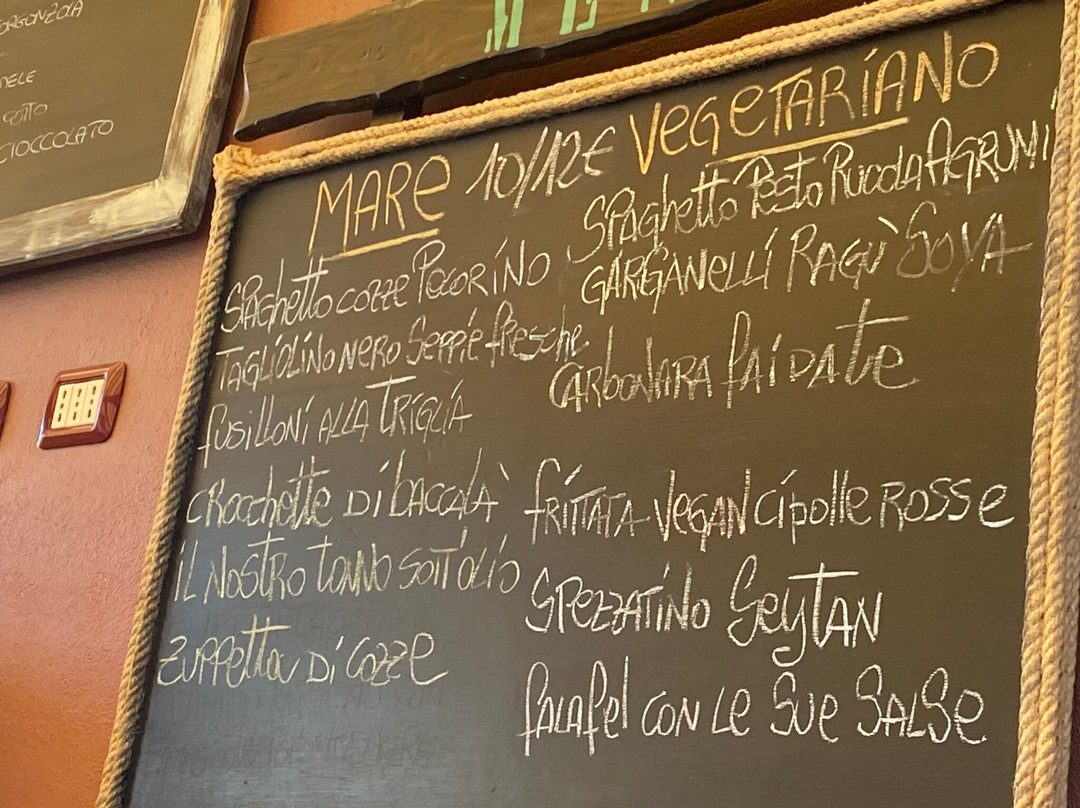 MELE
COTTO
CIOCCOLATO
MARE 10/12€
Spaghetto cozze Pecorino
Tagliolino nero Seppie fresche
fusilloni alla Triglia
crocchette di baccalà
il nostro tonno sott'olio
Zuppetta di cozze
VEGETARIANO
Spaghetto Pesto Rucola Agrumi
Garganelli Ragù Soya
Carbonara fai da te
frittata vegan cipolle rosse
Spezzatino Seytan
falafel con le sue salse